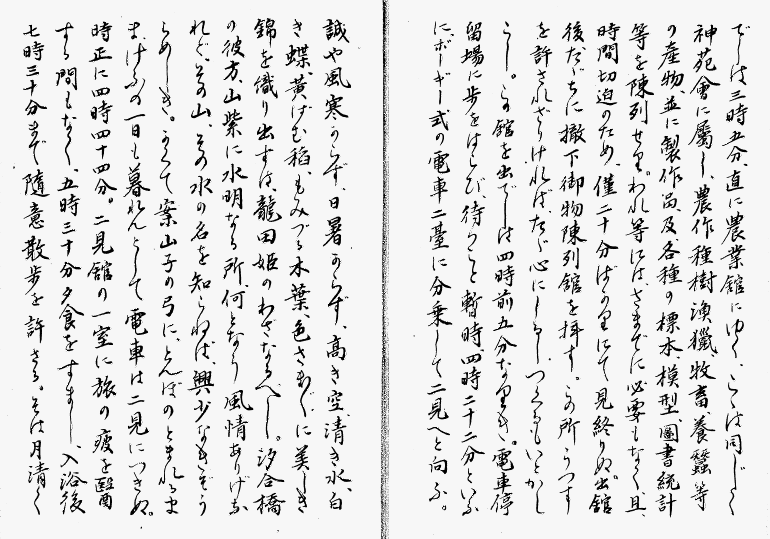 でしは三時五分、直に農業館にゆく、こは同じく
神苑會に屬し、農作、種樹、漁獵、牧畜、養蠶等
の産物、並に製作品、及各種の標本、模型、圖書統計
等を陳列せり。われ等には、さまでに必要もなく、且、
時間切迫のため、僅二十分ばかりにて見終りぬ。出館
後、たゞちに撤下御物陳列館を拝す。この所、うつす
を許されざりければ、たゞ心にしるしつくるもいとかし
こし。この館を出でしは四時前五分なりき。電車停
留場に歩をはこび、待つこと暫時、四時二十二分といふ
に、ボーギー式の電車二臺に分乗して二見へと向ふ。
誠や風寒からず、日暑からず、高き空、清き水、白
き蝶、黄ばむ稻、もみづる木葉、色さまざまに美しき
錦を織り出すは、龍田姫のわざなるべし。汐合橋
の彼方、山紫に水明なる所、何となう風情ありげな
れど、その山、その水の名を知らねば、興少なきぞう
らめしき。かくて案山子の弓に、とんぼのとまれるま
ま、けふの一日も暮れんとして電車は二見につきぬ。
時正に四時四十四分。二見館の一室に旅の疲を醫
する間もなく、五時三十分夕食をすまし、入浴後
七時三十分まで隨意散歩を許さる。そは月清く